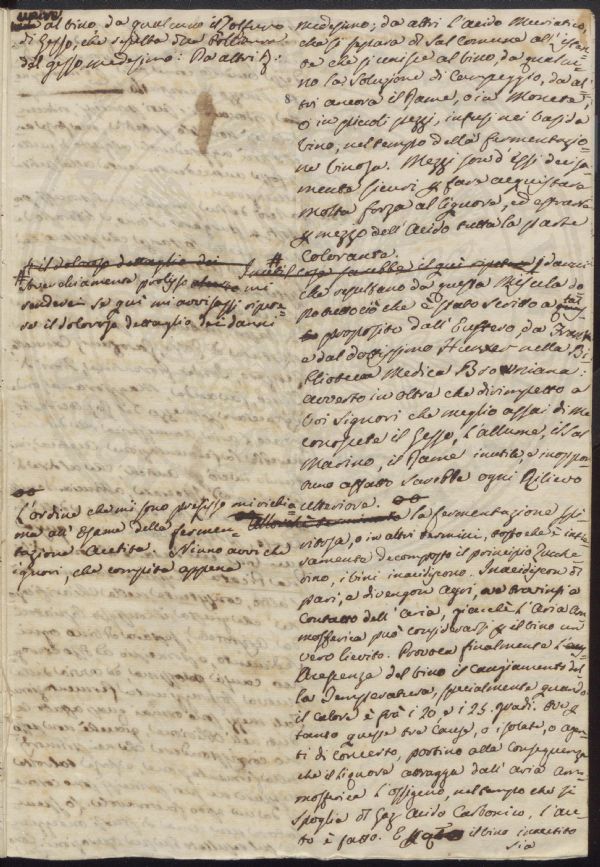 unire al vino da qualcuno il Solfuro
di Gesso, che risulta dalla
del gesso medesimo: Da altri
medesimo; da altri l'acido Muriatico,
che si separa dal sal comune all'istan-
te che si unisce al vino, da qualcu-
no la soluzione di Campeggio, da al-
tri ancora il Rame, o in Moneta,
o in piccoli pezzi, infusi nei vasi da
vino, nel tempo della fermentazio-
ne vinosa. Mezzi son d'essi
sicuri per fare acquistare
molta forza al liquore, ed estrarre
per mezzo dell'Acido tutta la parte
Colorante.
il doloroso dettaglio dei
# Straordinariamente prolisso mi
renderei se qui mi avvisassi ripete-
re il doloroso dettaglio dei danni
# Inutil cosa sarebbe il qui ripetere i danni
che risultano da questa Miscela do
po tutto ciò che è stato scritto a tal
proposito dall' da Frank
e dal dottissimo nella Bi-
blioteca Medica Browniana:
avverto in oltre che dirimpetto a
Voi Signori che meglio assai di me
conoscete il Gesso, l'allume, il Sal
Marino, il Rame inutile, e inoppor-
tuno affatto sarebbe ogni Rilievo
ulteriore.
L'ordine che mi sono prefisso mi richia-
ma all'Esame della fermen-
tazione Acetita. Niuno avvi che
ignori, che compita appena
la fermentazione Spi-
ritosa, o in altri termini, tosto che è intie-
ramente decomposto il principio Zucche-
rino, i vini inacidiscono. Inacidiscon di
pari, e divengon agri, per
Contatto dell'Aria, giacchè l'Aria At-
mosferica può considerarsi per il vino un
vero lievito. Provoca finalmente l'
Acrepenza del vino il cangiamento del-
la Temperatura, specialmente quando
il calore è frà i 20 e i 25. gradi. Ove per
tanto queste tre cause, o isolate, o agen-
ti di concerto, portino alla conseguenza
che il liquore attragga dall'aria At-
mosferica l'Ossigeno, nel tempo che si
spoglia di Gaz Acido Carbonico, l'ace-
to è fatto. E il vino inacetito
sia